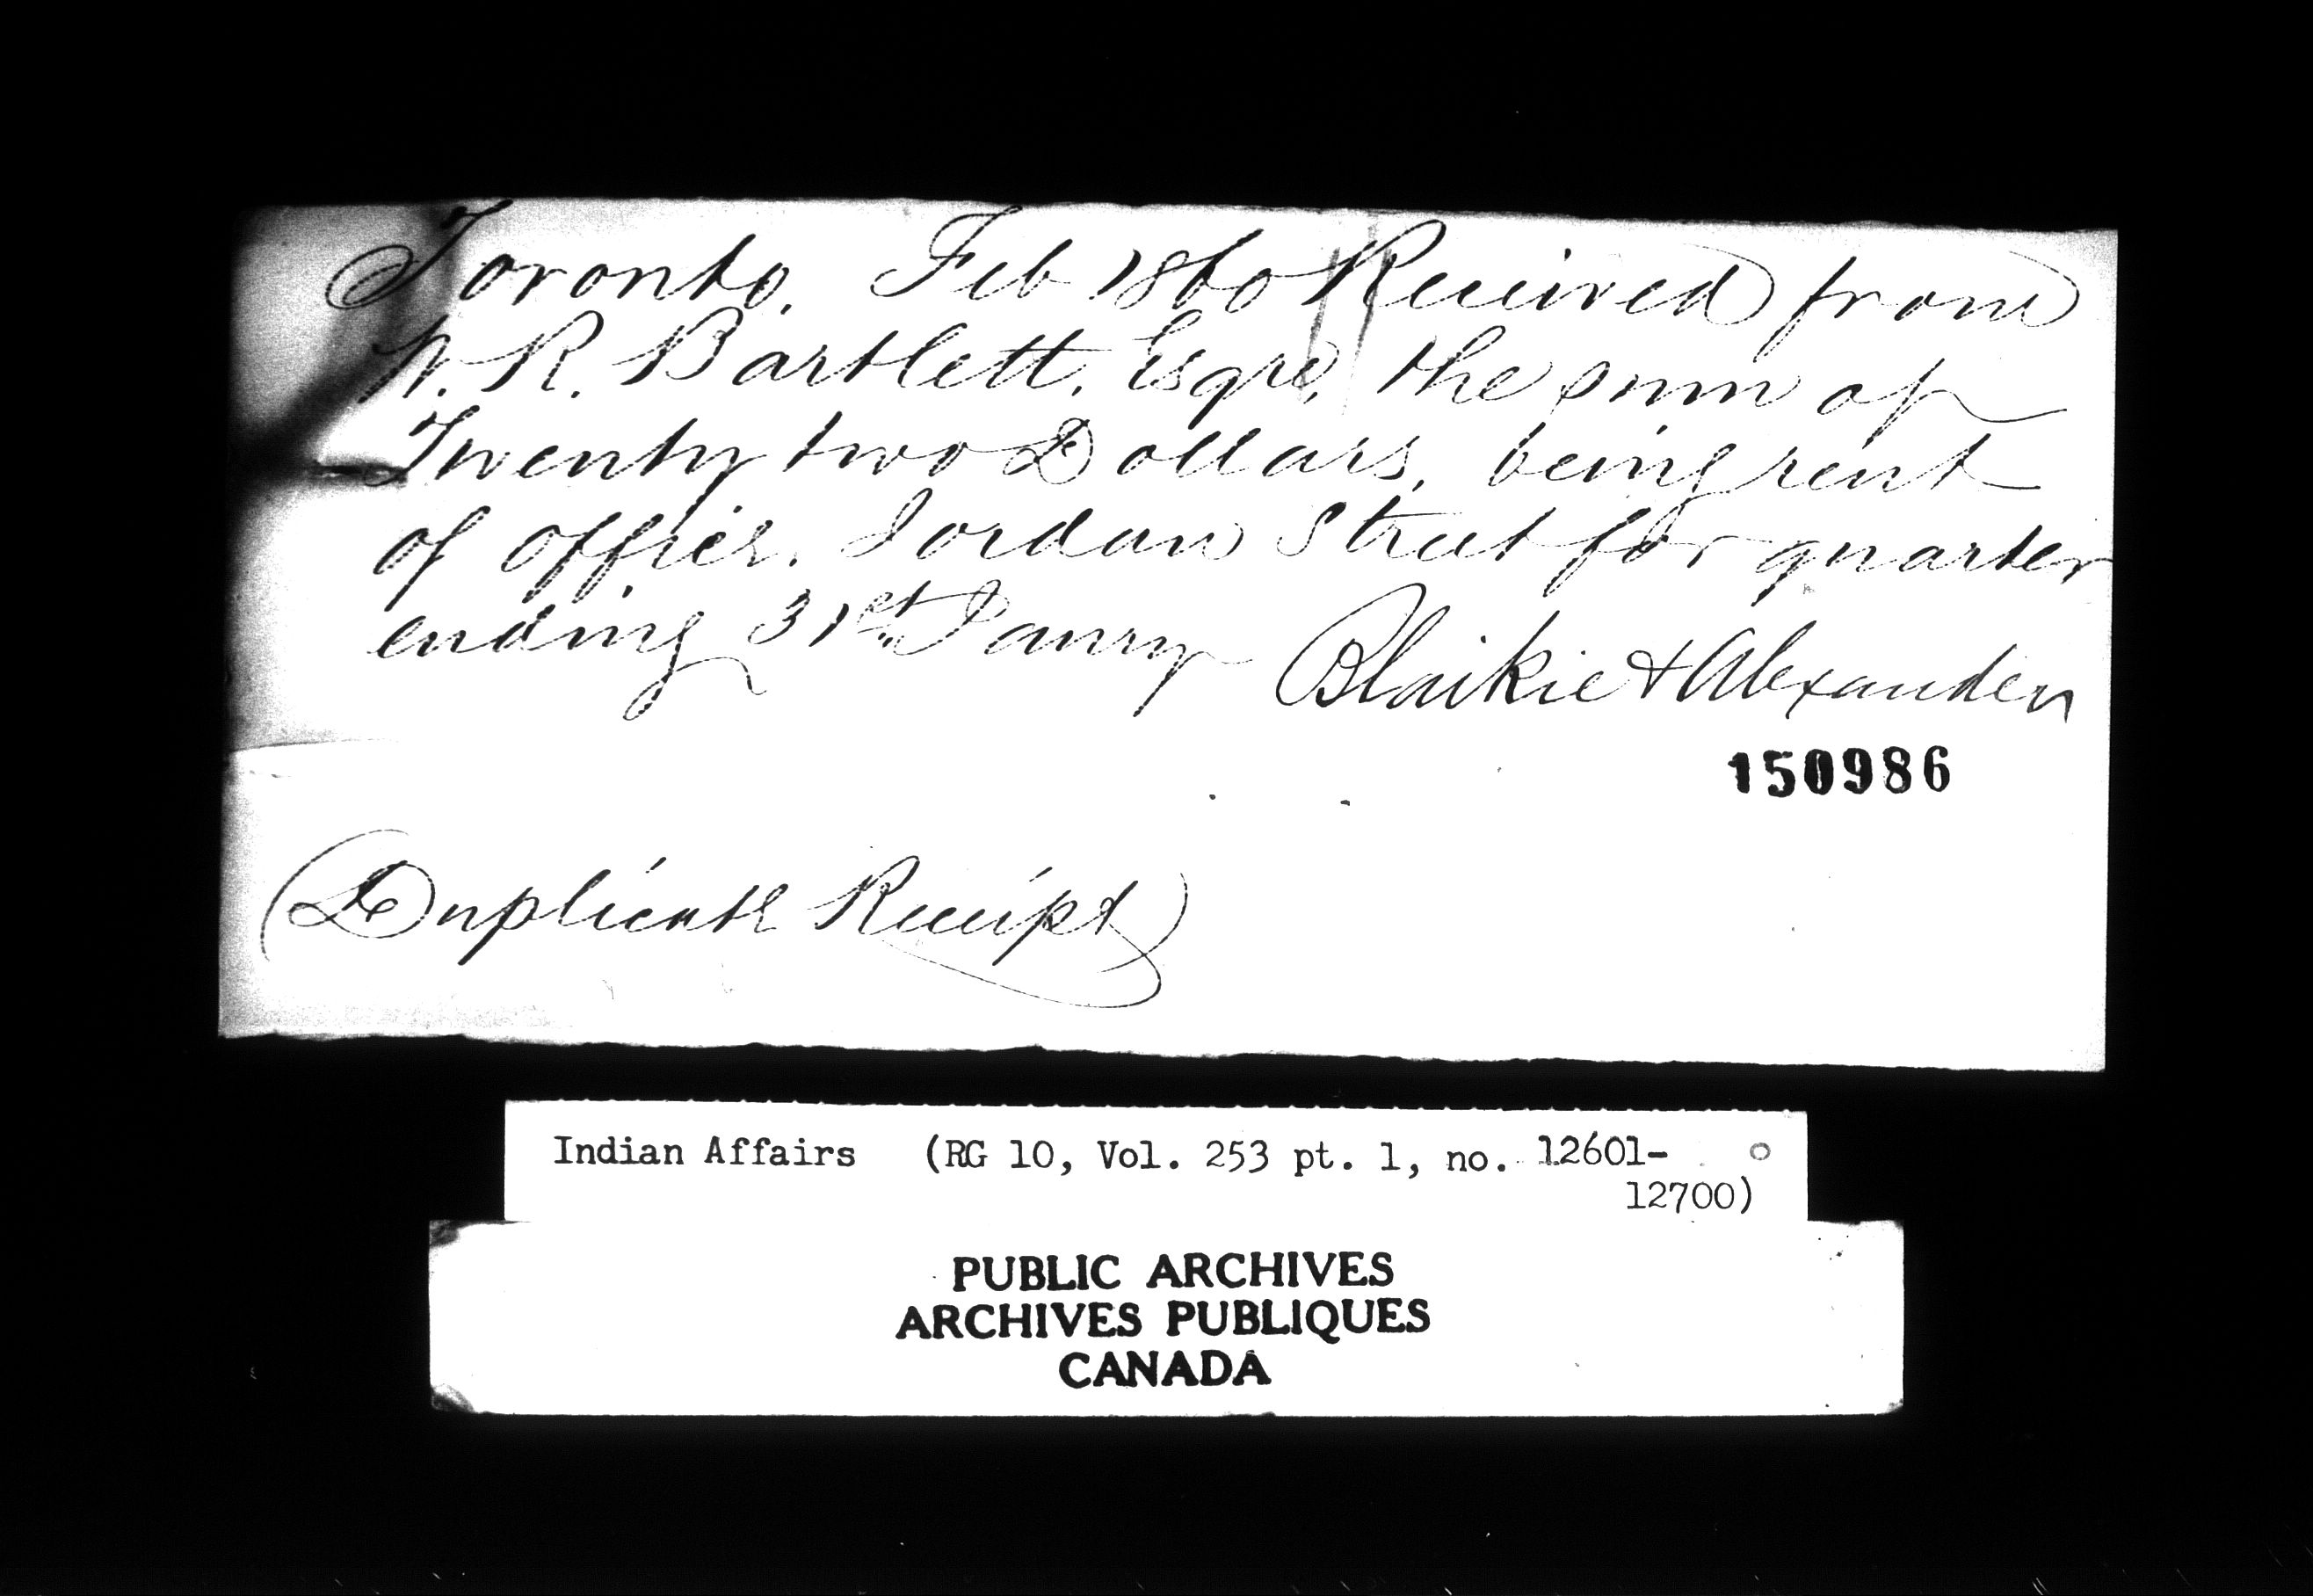 Toronto, Feb 1860 Received from
W. R. Bartlett, Esqre, the sum of
Twenty two Dollars, being rent
of offices, Jordan Street for quarter
ending 31st Janry
Blaikie & Alexander
150986
(Duplicate Receipt)
Indian Affairs (RG 10, Vol. 253 pt. 1, no. 12601-
12700)
PUBLIC ARCHIVES
ARCHIVES PUBLIQUES
CANADA